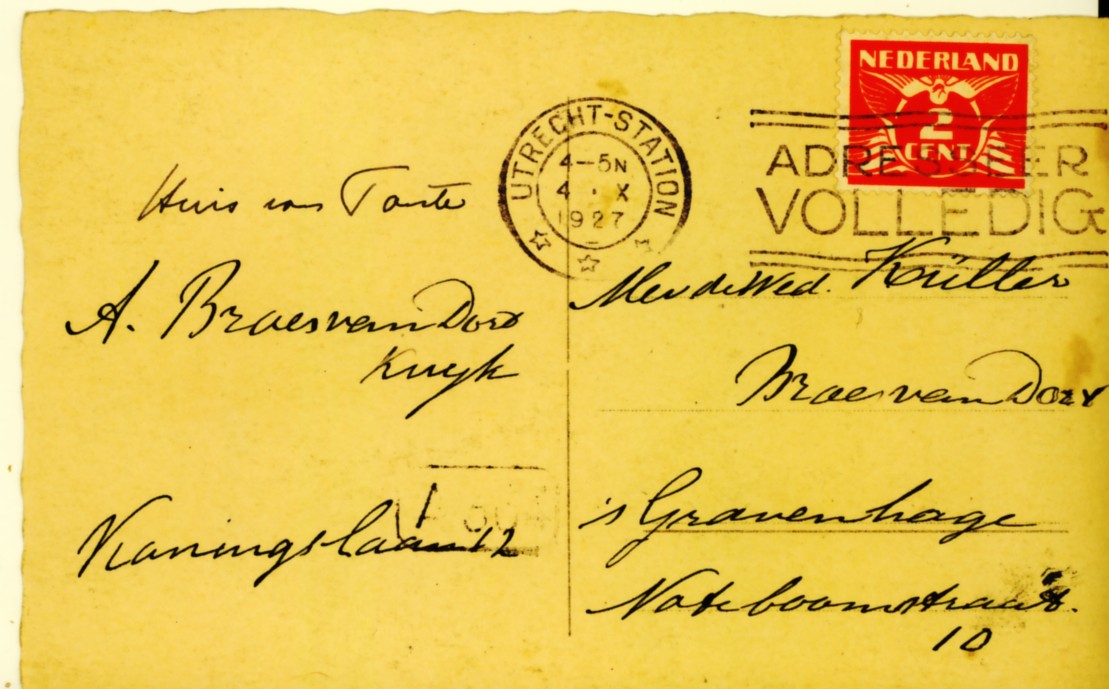 Huis van Tante
A. Broes van Dort
Kuyk
Koningslaan 12
UTRECHT-STATION
4-5N
4 X
1927
NEDERLAND
2
CENT
ADRESSEER
VOLLEDIG
Mev de Wed. Küller
Broes van Dort
's Gravenhage
Noteboomstraat.
10